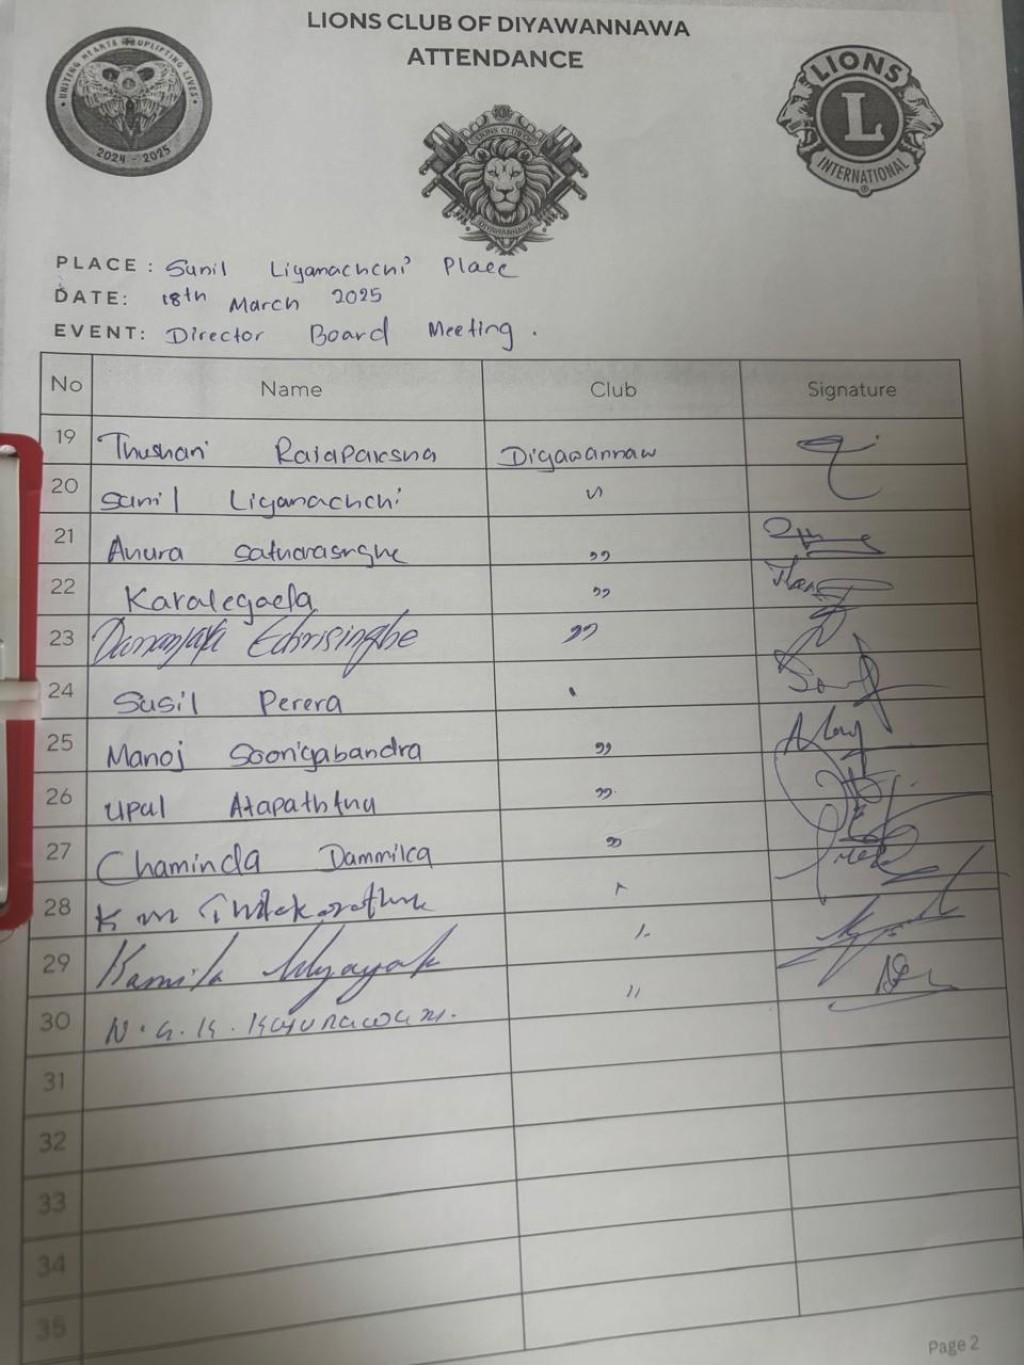 LIONS CLUB OF DIYAWANNAWA
ATTENDANCE
UNITING HEARTS UPLIFTING LIVES
2024 - 2025
LIONS CLUB OF
DIYAWANNAWA
LIONS
L
INTERNATIONAL
PLACE : Sunil Liyanachchi Place
DATE: 18th March 2025
EVENT: Director Board Meeting .
No Name Club Signature
19 Thushari Rajapaksha Diyawannaw
20 Sunil Liyanachchi "
21 Anura Satharasinghe "
22 Karalegaela "
23 Dananjaya Edirisinghe "
24 Susil Perera
25 Manoj Sooriyabandra "
26 Upal Atapaththu "
27 Chaminda Dammika "
28 K M Thilakarathne
29 Kamila
30 N. G. K. "
31
32
33
34
35
Page 2